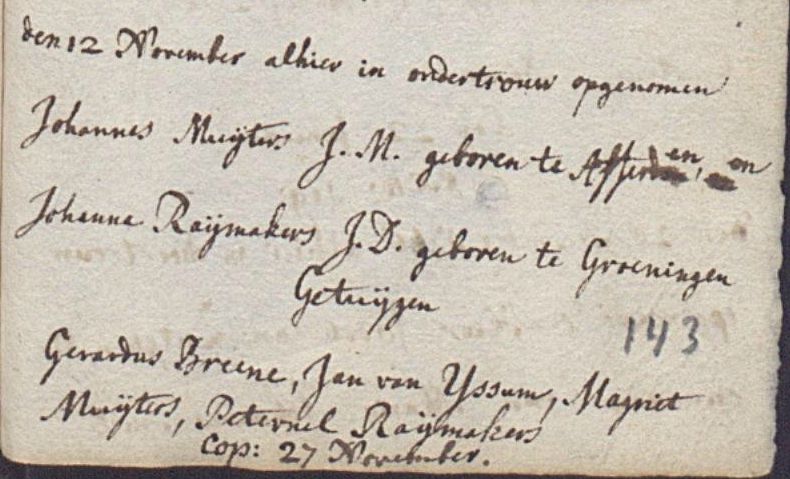 den 12 November alhier in ondertrouw opgenomen
Johannes Muijters J. M. geboren te Afferden, en
Johanna Raijmakers J. D. geboren te Groeningen
Getuijgen
143
Gerardus Breene, Jan van Yssum, Magriet
Muijters, Peternel Raijmakers
Cop: 27 November.